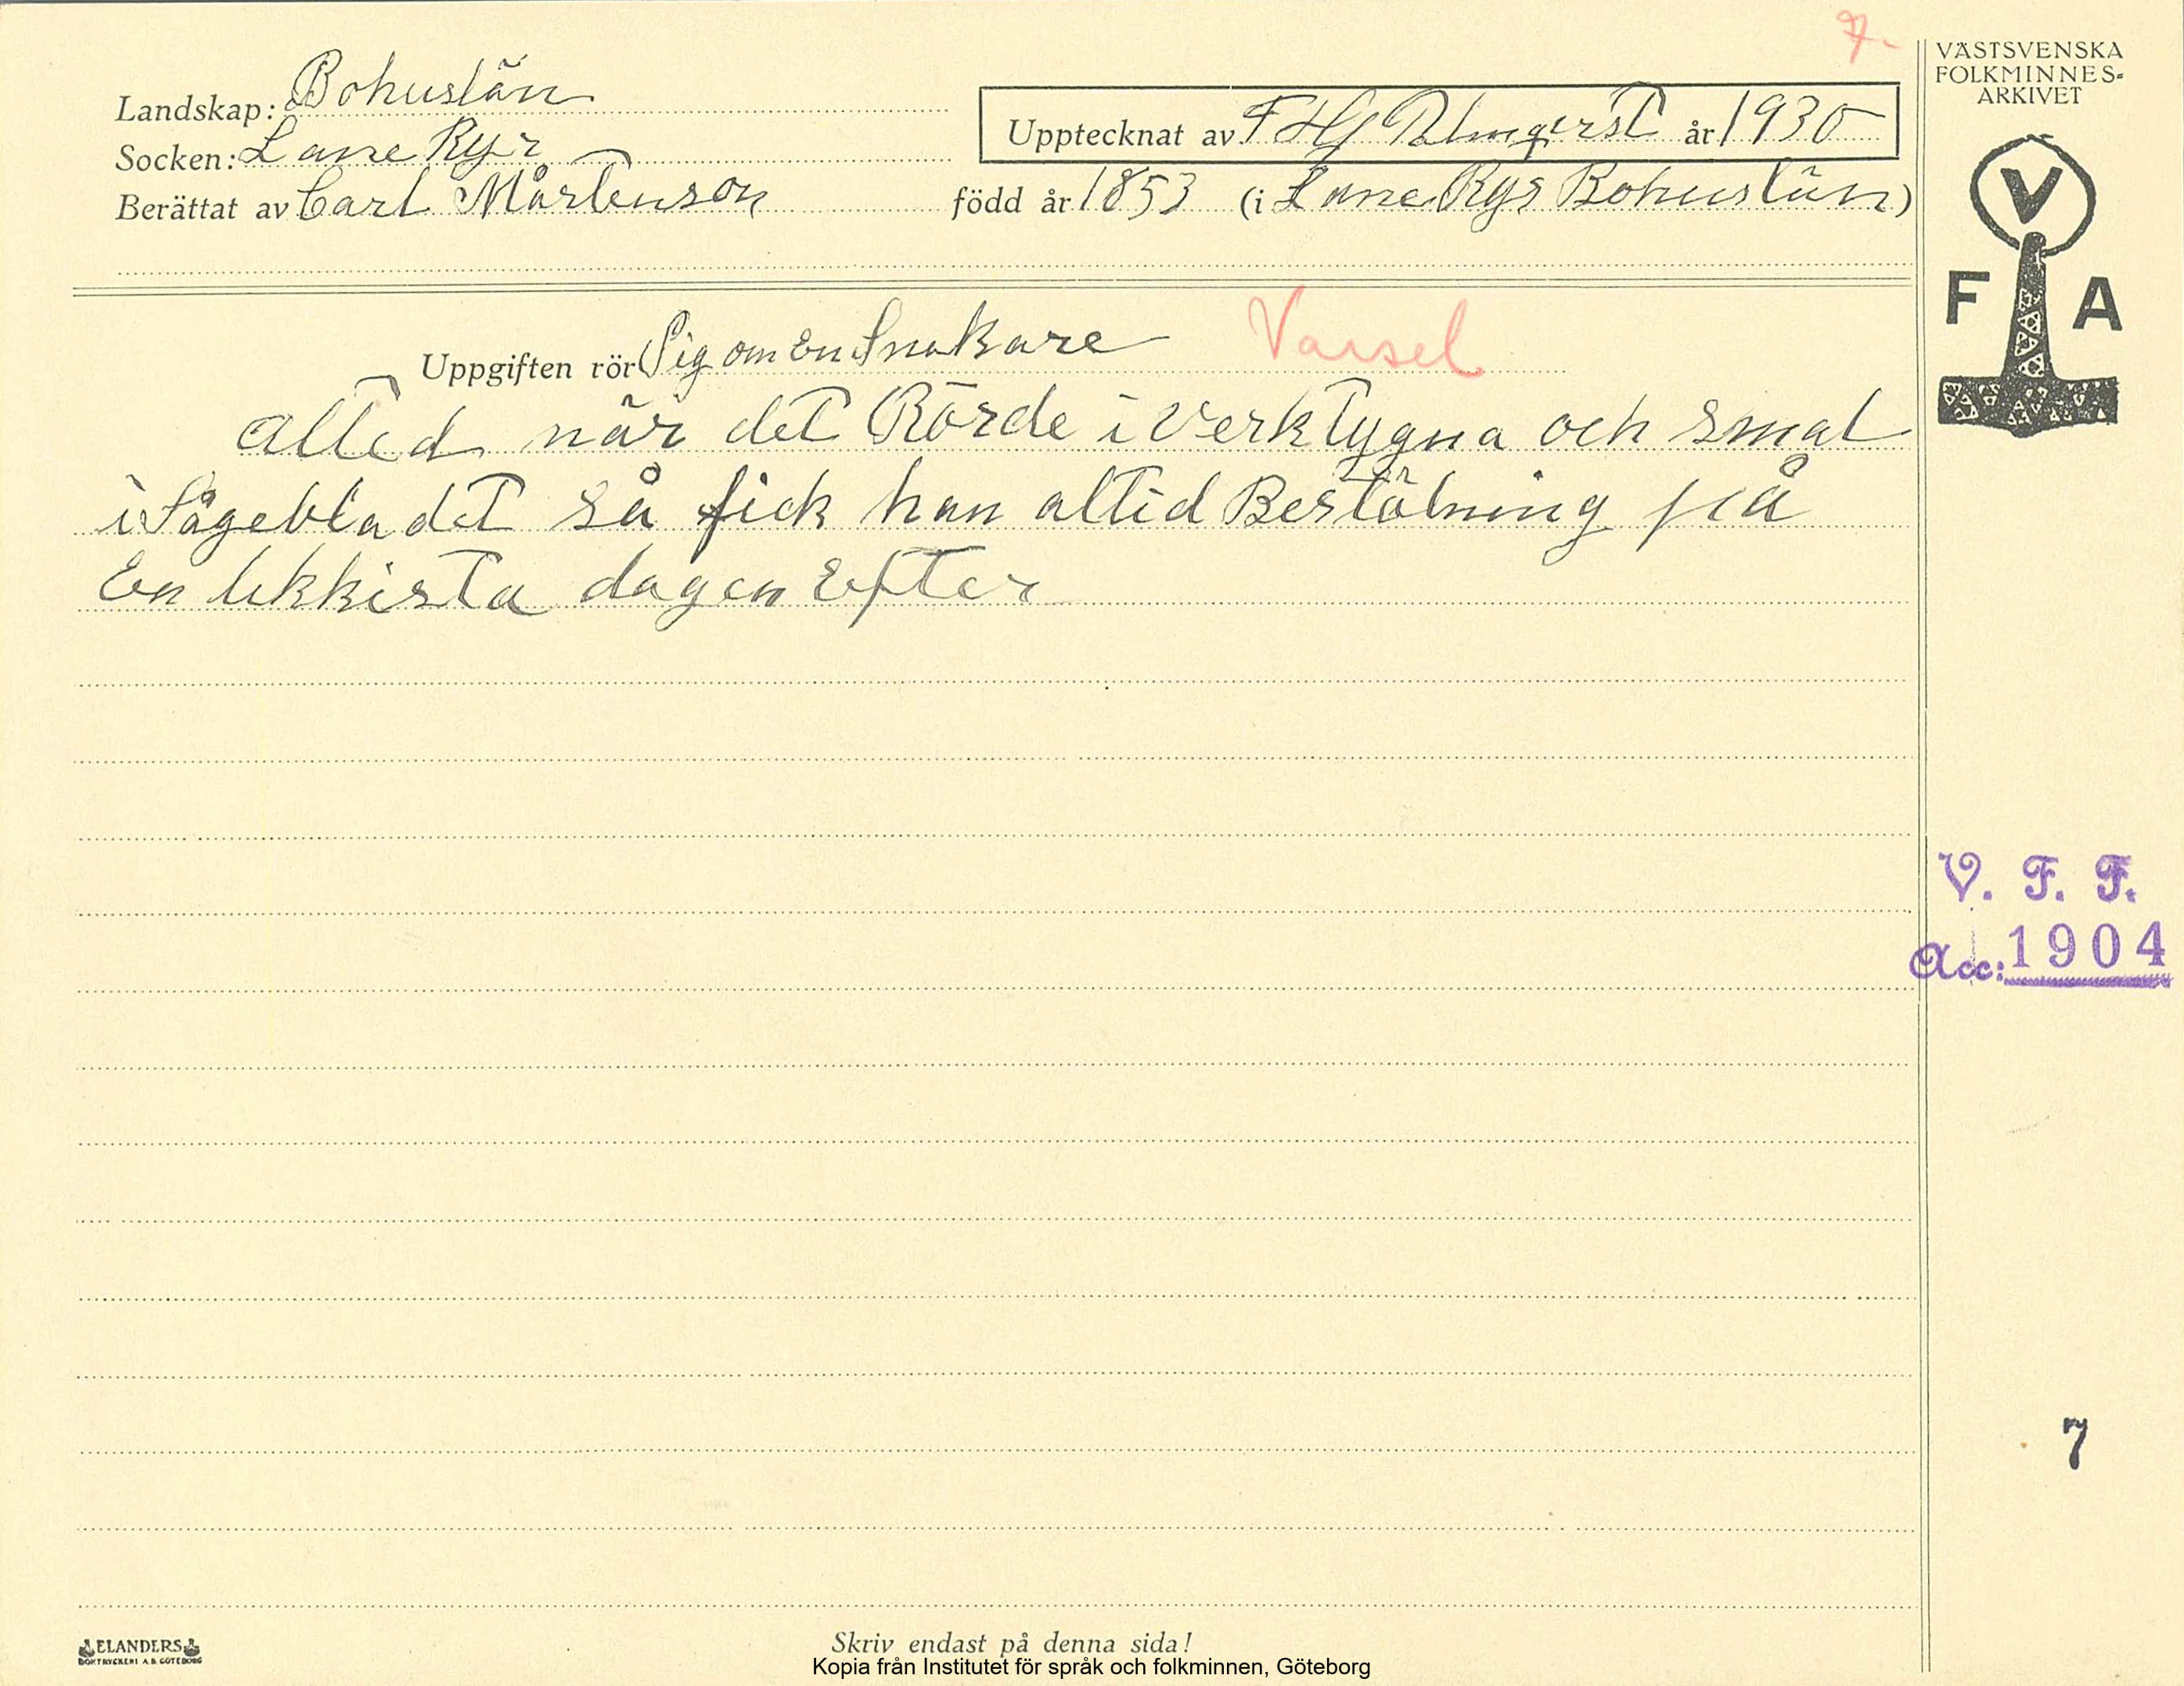 7.
VÄSTSVENSKA
FOLKMINNES-
ARKIVET
Landskap: Bohuslän
Upptecknat av F Hj Palmqvist år 1930
Socken: Lane Ryr
Berättat av Carl Mårtenson född år 1853 (i Lane Ryr Bohuslän)
V
F A
Uppgiften rör Sig om En Snikare Varsel
alltid när det Rörde i Verktygna och Smal
i Sågebladet så fick han altid Bestälning på
En likkista dagen Efter
V. F. F.
Acc: 1904
7
ELANDERS
BOKTRYCKERI A.B. GÖTEBORG
Skriv endast på denna sida!
Kopia från Institutet för språk och folkminnen, Göteborg